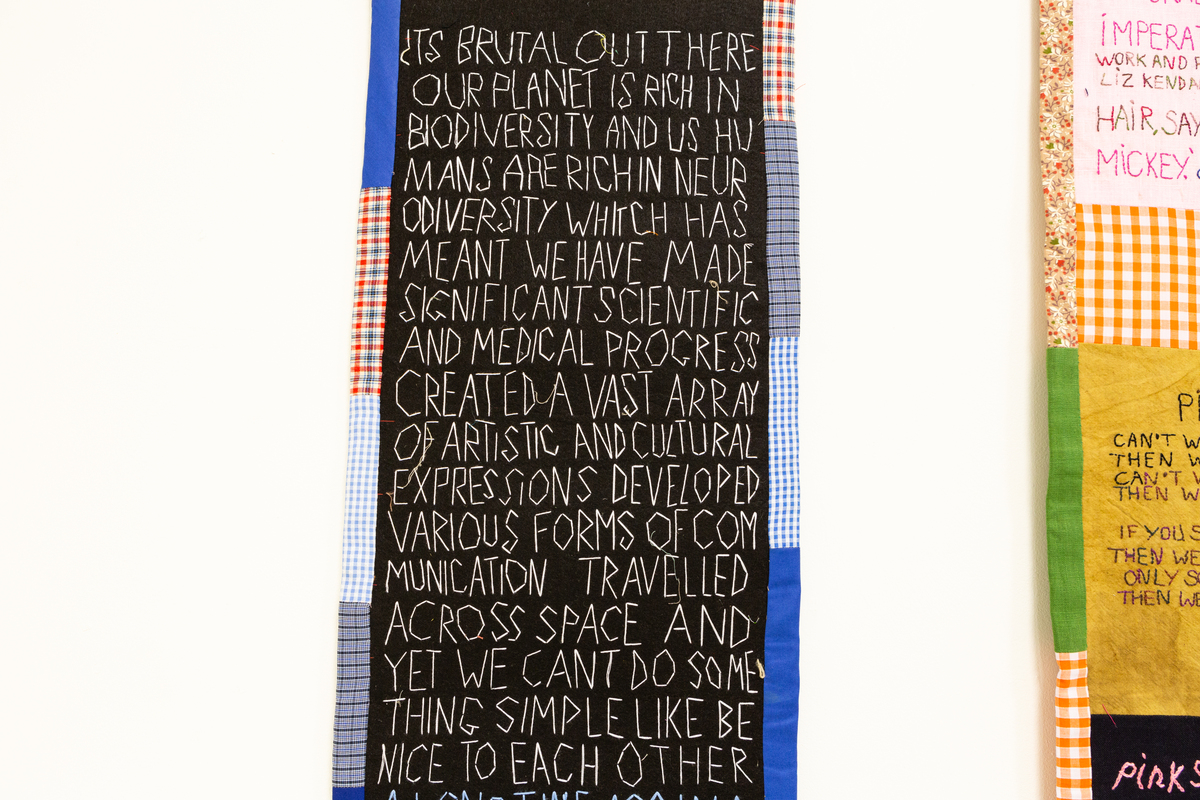 ITS BRUTAL OUT THERE
OUR PLANET IS RICH IN
BIODIVERSITY AND US HU
MANS ARE RICH IN NEUR
ODIVERSITY WHICH HAS
MEANT WE HAVE MADE
SIGNIFICANT SCIENTIFIC
AND MEDICAL PROGRESS
CREATED A VAST ARRAY
OF ARTISTIC AND CULTURAL
EXPRESSIONS DEVELOPED
VARIOUS FORMS OF COM
MUNICATION TRAVELLED
ACROSS SPACE AND
YET WE CANT DO SOME
THING SIMPLE LIKE BE
NICE TO EACH OTHER
WORK AND
LIZ
HAIR, SAY
MICKEY.'
CAN'T
THEN
CAN'T
THEN
IF YOU
THEN WE
ONLY
THEN WE
PINK